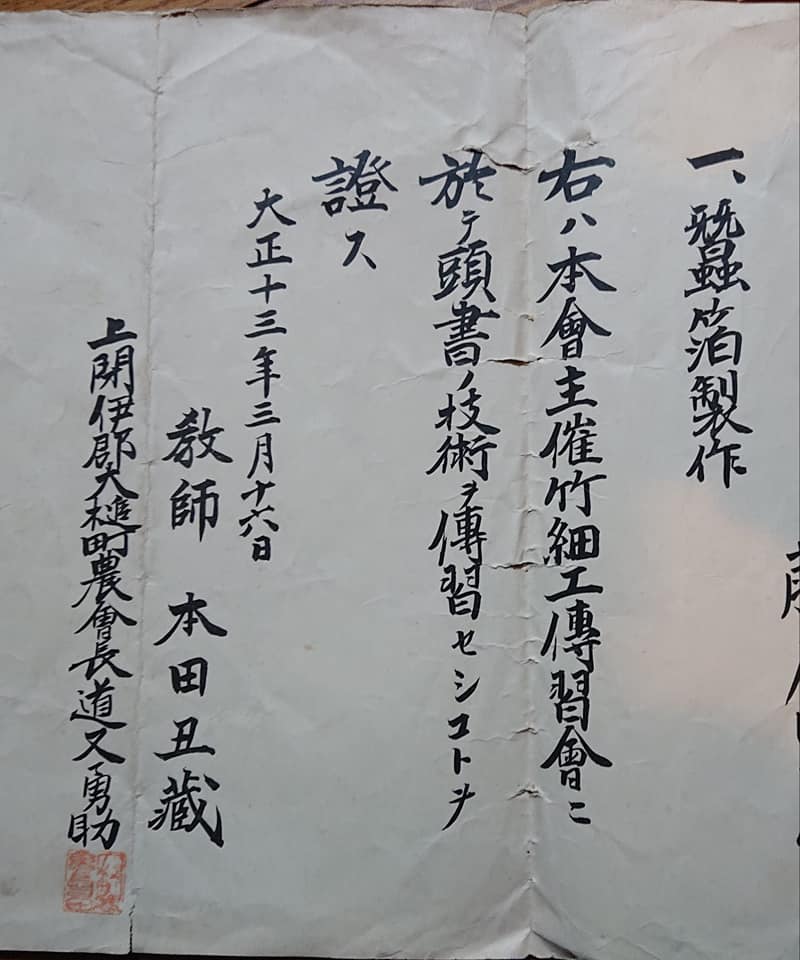 一、蠶箔製作
右ハ本會主催竹細工傳習會ニ
於テ頭書ノ技術ヲ傳習セシコトヲ
證ス
大正十三年三月十六日
教師 本田丑藏
上閉伊郡大槌町農會長道又勇助